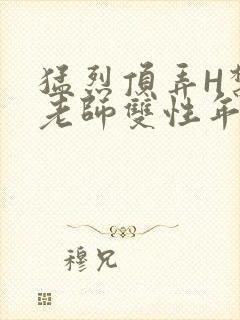 猛烈頂弄H
老師雙性年
穆兄